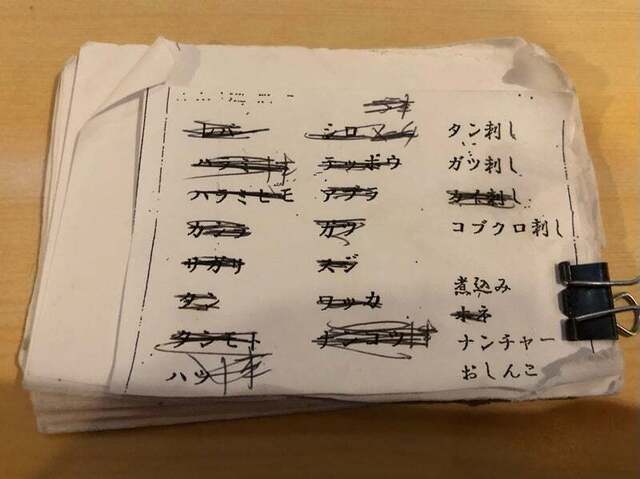 レバ
ハラミ
ハラミヒモ
カシラ
サガリ
タン
タンモト
ハツ
シロ
テッポウ
アブラ
ガツ
スジ
ワッカ
ナンコツ
タン刺し
ガツ刺し
刺し
コブクロ刺し
煮込み
ホネ
ナンチャー
おしんこ